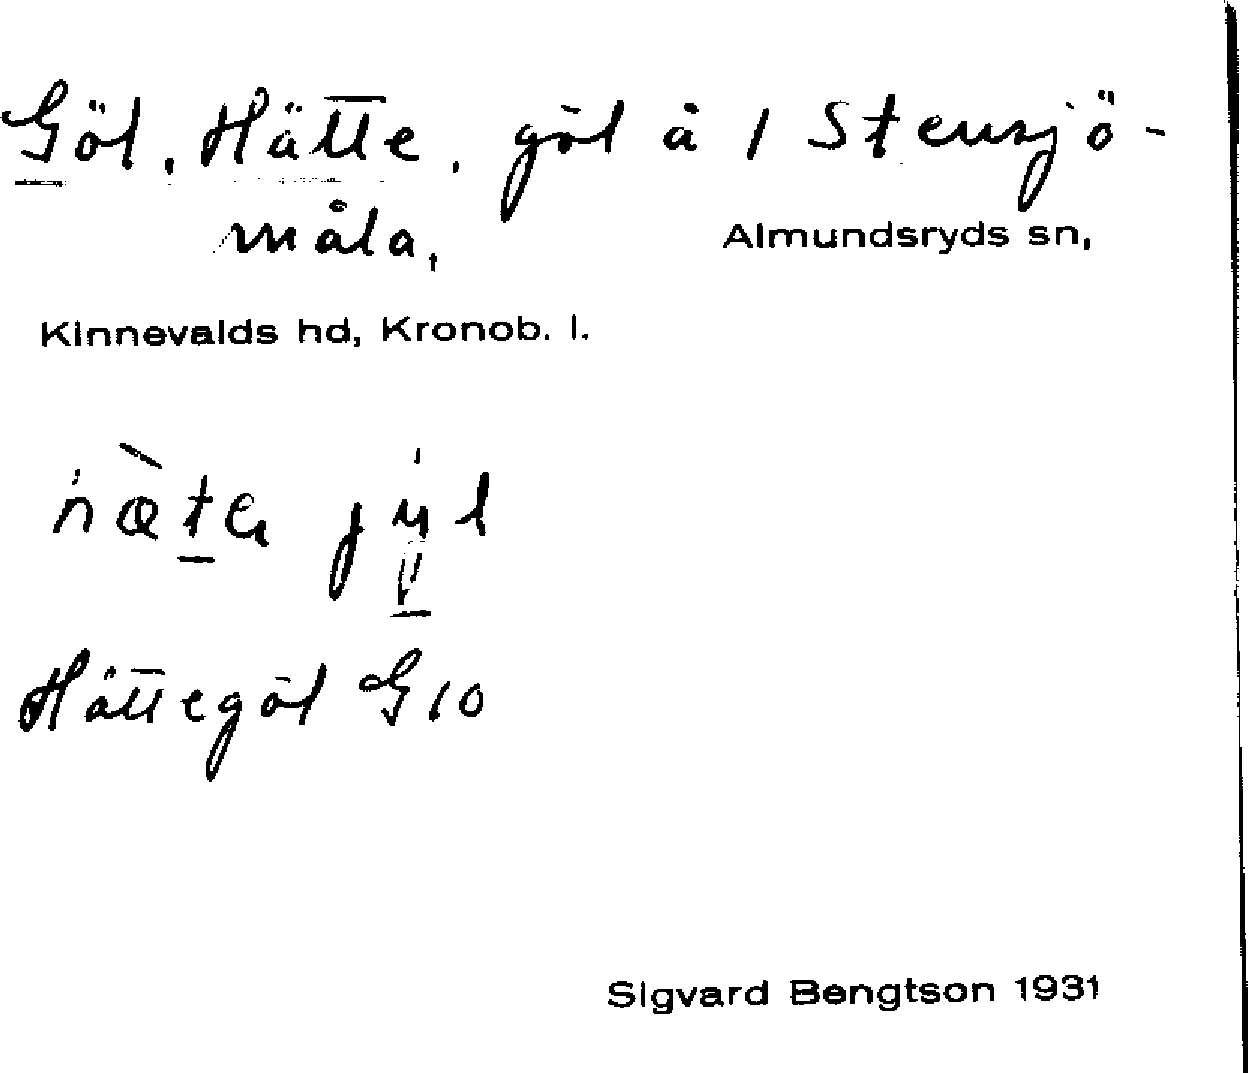 Göl, Hätte, göl å 1 Stensjö-
måla, Almundsryds sn,
Kinnevalds hd, Kronob. l.
Hättegöl G10
Sigvard Bengtson 1931